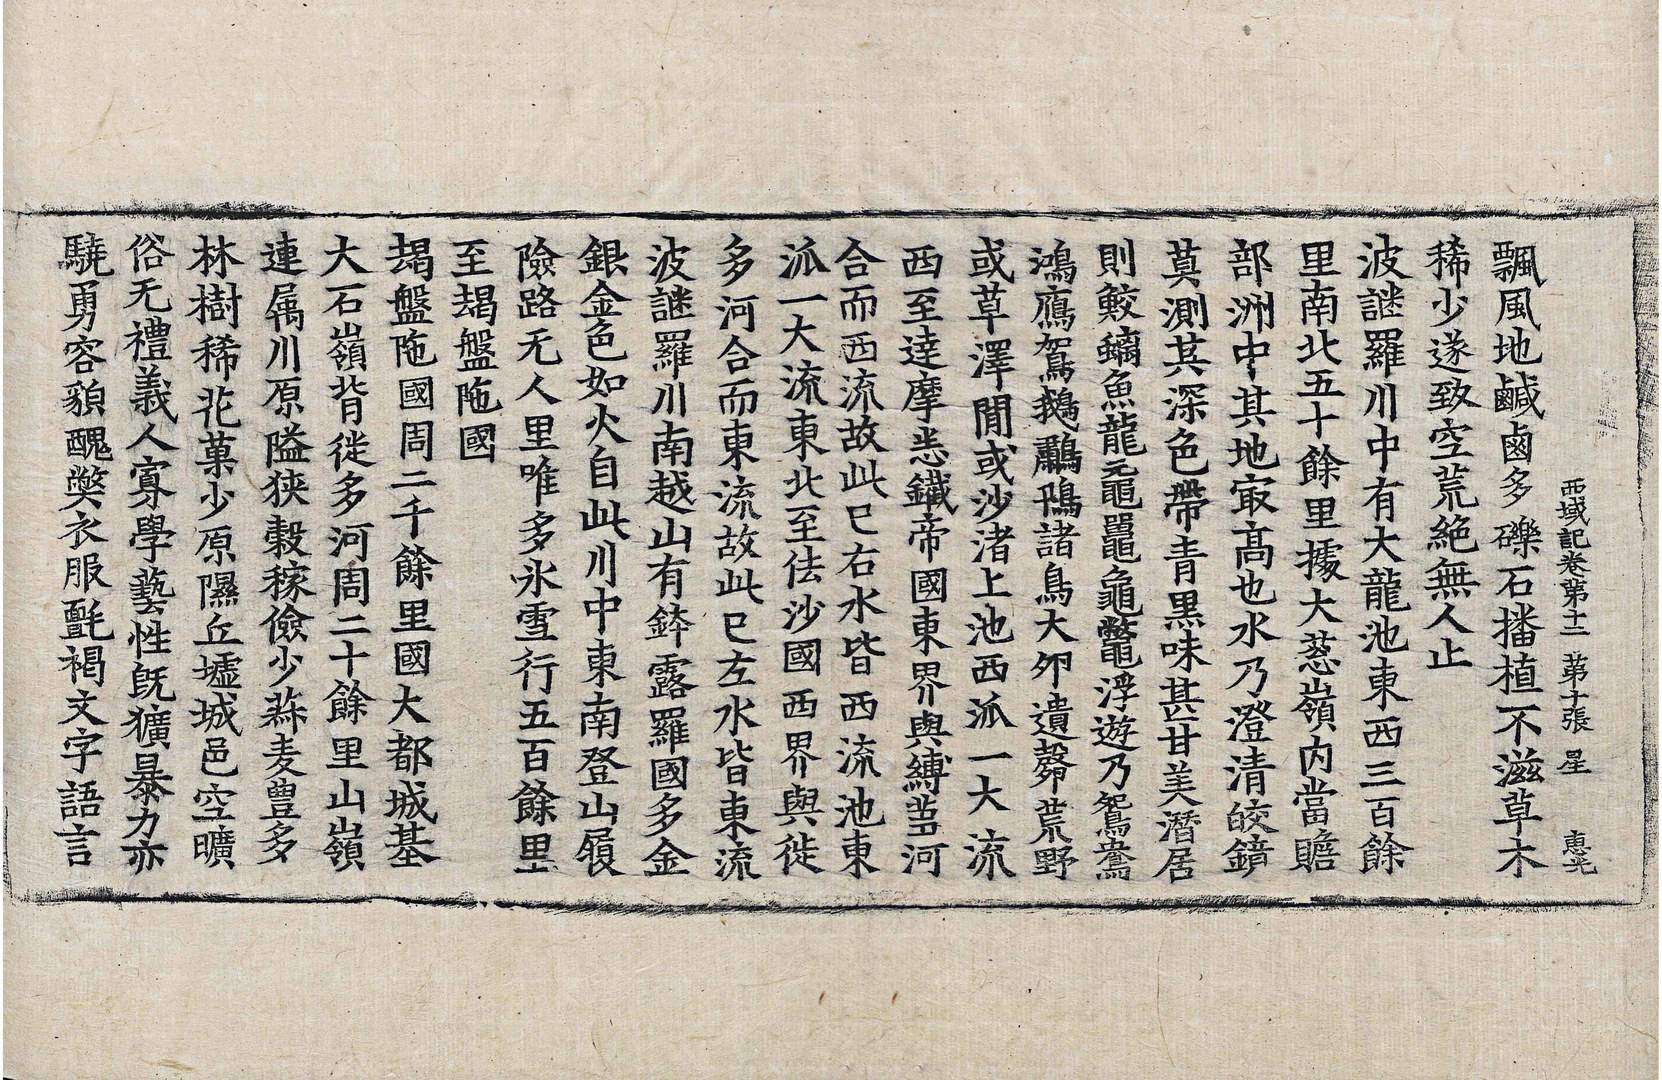 西域記卷第十二　第十張　星　惠光
飄風地鹹鹵多礫石播植不滋草木
稀少遂致空荒絶無人止
波謎羅川中有大龍池東西三百餘
里南北五十餘里據大葱嶺内當贍
部洲中其地㝡高也水乃澄清皎鏡
莫測其深色帶青黑味甚甘美潛居
則鮫螭魚龍黿鼉龜鼈浮遊乃鴛鴦
鴻鴈駕鵝鸕鴇諸鳥大卵遺鷇荒野
或草澤閒或沙渚上池西派一大流
西至達摩悉鐵帝國東界與縛芻河
合而西流故此已右水皆西流池東
派一大流東北至佉沙國西界與徙
多河合而東流故此已左水皆東流
波謎羅川南越山有鉢露羅國多金
銀金色如火自此川中東南登山履
險路无人里唯多氷雪行五百餘里
至朅盤陁國
朅盤陁國周二千餘里國大都城基
大石嶺背徙多河周二十餘里山嶺
連属川原隘狹穀稼儉少菽麦豊多
林樹稀花菓少原隰丘墟城邑空曠
俗无禮義人寡學藝性旣獷暴力亦
驍勇容貌醜弊衣服氈褐文字語言